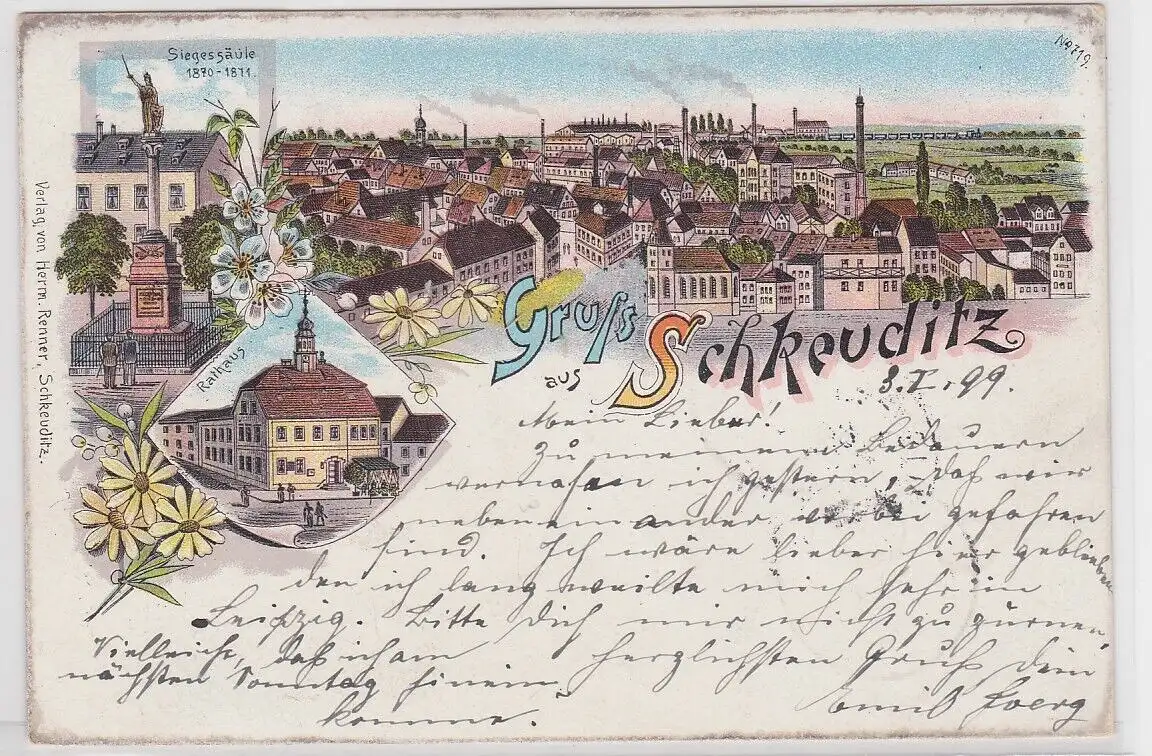 Siegessäule
1870-1871.
No 719.
Verlag von Herm. Renner, Schkeuditz.
Rathaus
Gruss
aus Schkeuditz
3.I.99.
Mein Lieber!
Zu meinem Bedauern
vernahm ich gestern, daß wir
nebeneinander vorbei gefahren
sind. Ich wäre lieber hier geblieben
den ich langweilte mich sehr in
Leipzig. Bitte Dich mir nicht zu zürnen.
Vielleicht, daß ich am
nächsten Sonntag hinein
komme.
herzlichsten Gruß Dein
Emil